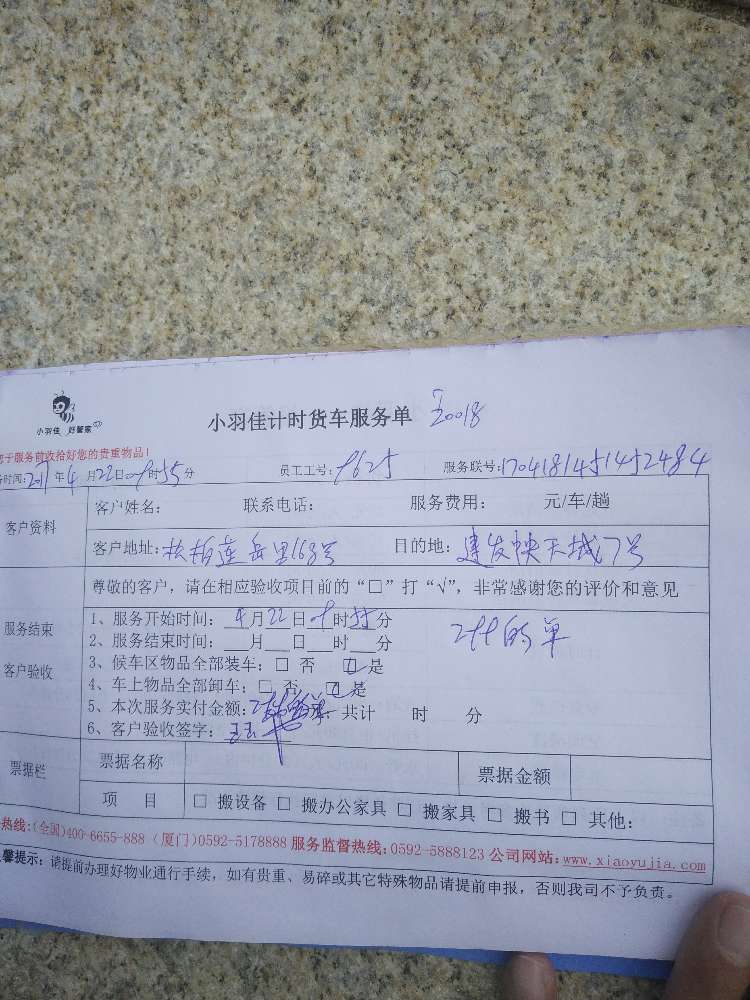 小羽佳 好管家
小羽佳计时货车服务单 20018
您于服务前收拾好您的贵重物品!
务时间:2017年4月22日09时55分 员工工号:9625 服务联号:17041814514524 84
客户资料
客户姓名: 联系电话: 服务费用: 元/车/趟
客户地址:松柏莲岳里163号 目的地:建发央天城7号
尊敬的客户,请在相应验收项目前的“□”打“√”,非常感谢您的评价和意见
服务结束
客户验收
1、服务开始时间:4月22日09时55分
2、服务结束时间:___月___日___时___分
3、候车区物品全部装车:□ 否 □ 是
4、车上物品全部卸车:□ 否 □ 是
5、本次服务实付金额: 共计 时 分
6、客户验收签字:
299的单
票据栏
票据名称 票据金额
项 目 □ 搬设备 □ 搬办公家具 □ 搬家具 □ 搬书 □ 其他:
热线:(全国)400-6655-888 (厦门)0592-5178888 服务监督热线:0592-5888123 公司网站:www.xiaoyujia.com
馨提示:请提前办理好物业通行手续,如有贵重、易碎或其它特殊物品请提前申报,否则我司不予负责。